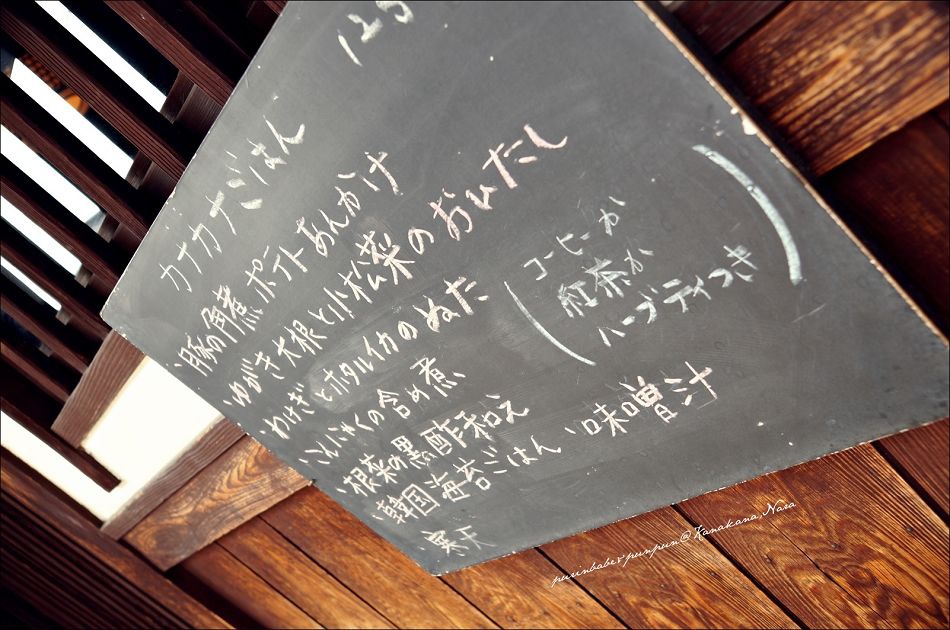 125
カナカナごはん
・豚の角煮 ポテトあんかけ
・ゆがき大根と小松菜のおひたし
・わけぎとホタルイカのぬた
・こんにゃくの含め煮
・根菜の黒酢和え
・韓国海苔ごはん ・味噌汁
・寒天
(コーヒーか
紅茶か
ハーブティつき)
purinbabe&punpun@Kanakana,Nara